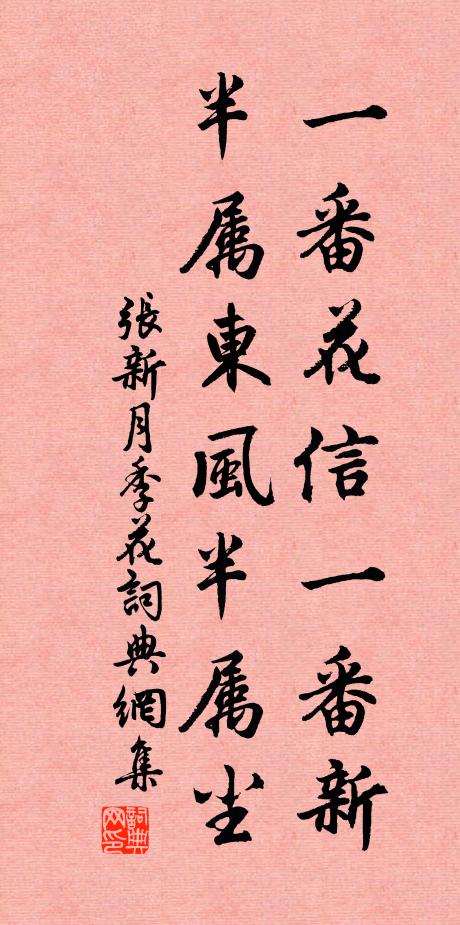 一番花信一番新
半属東風半属尘
張新月季花詞典網集
詞典网印